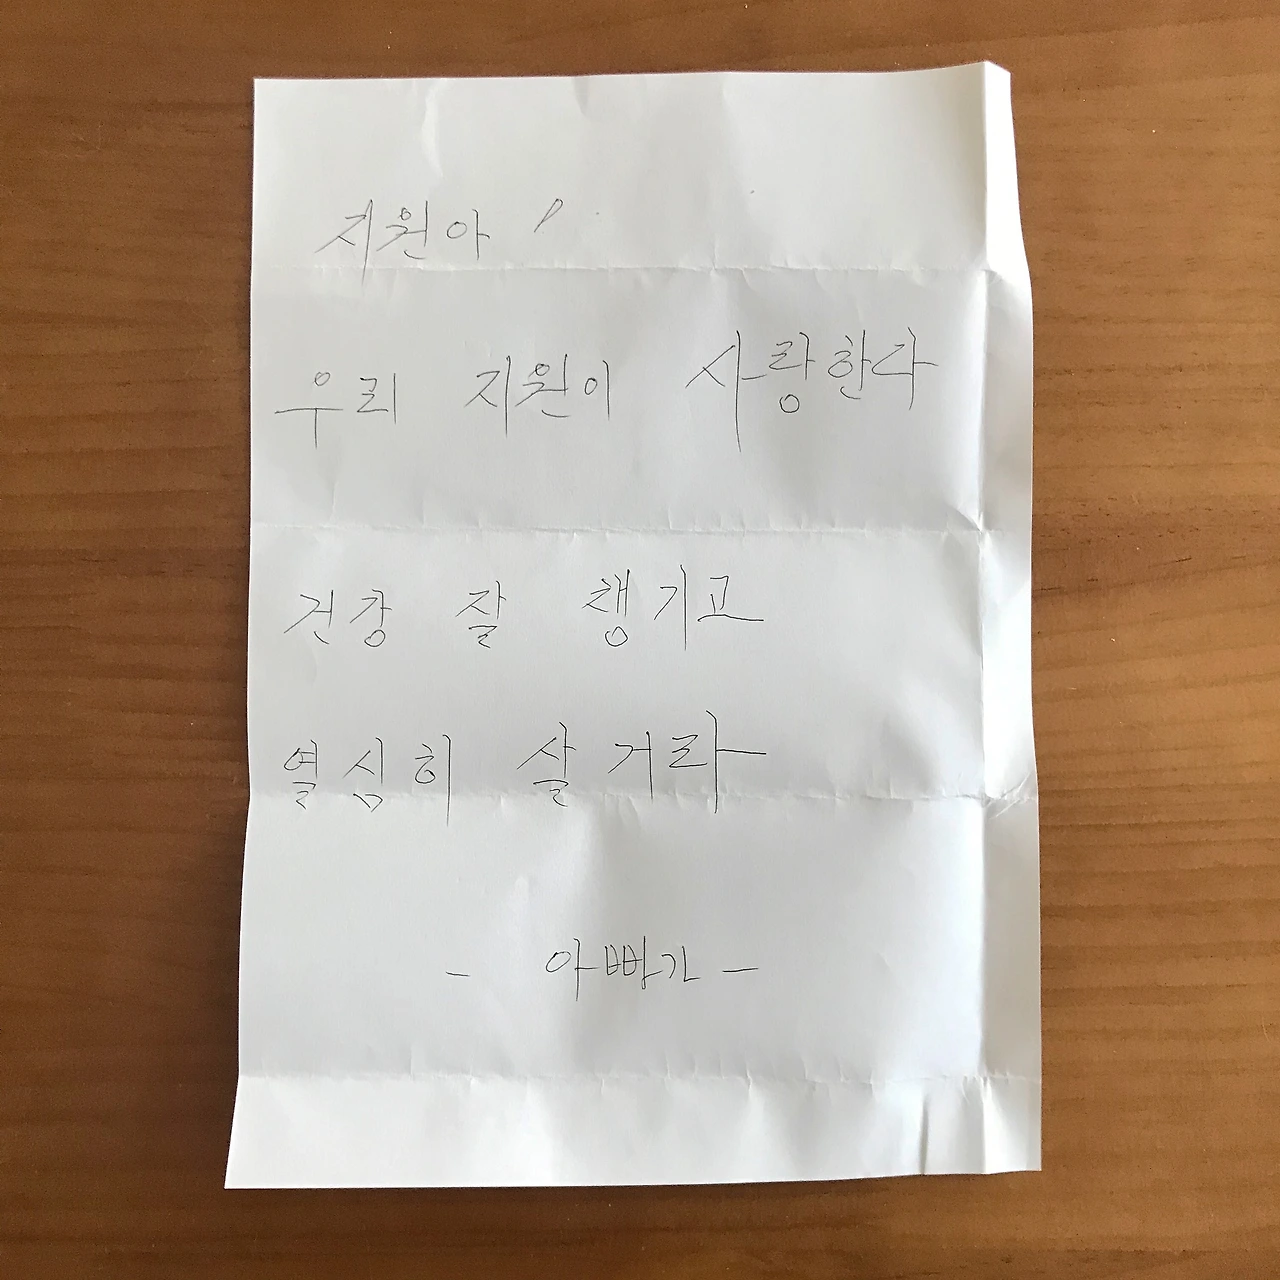 지원아!
우리 지원이 사랑한다
건강 잘 챙기고
열심히 살거라
- 아빠가 -